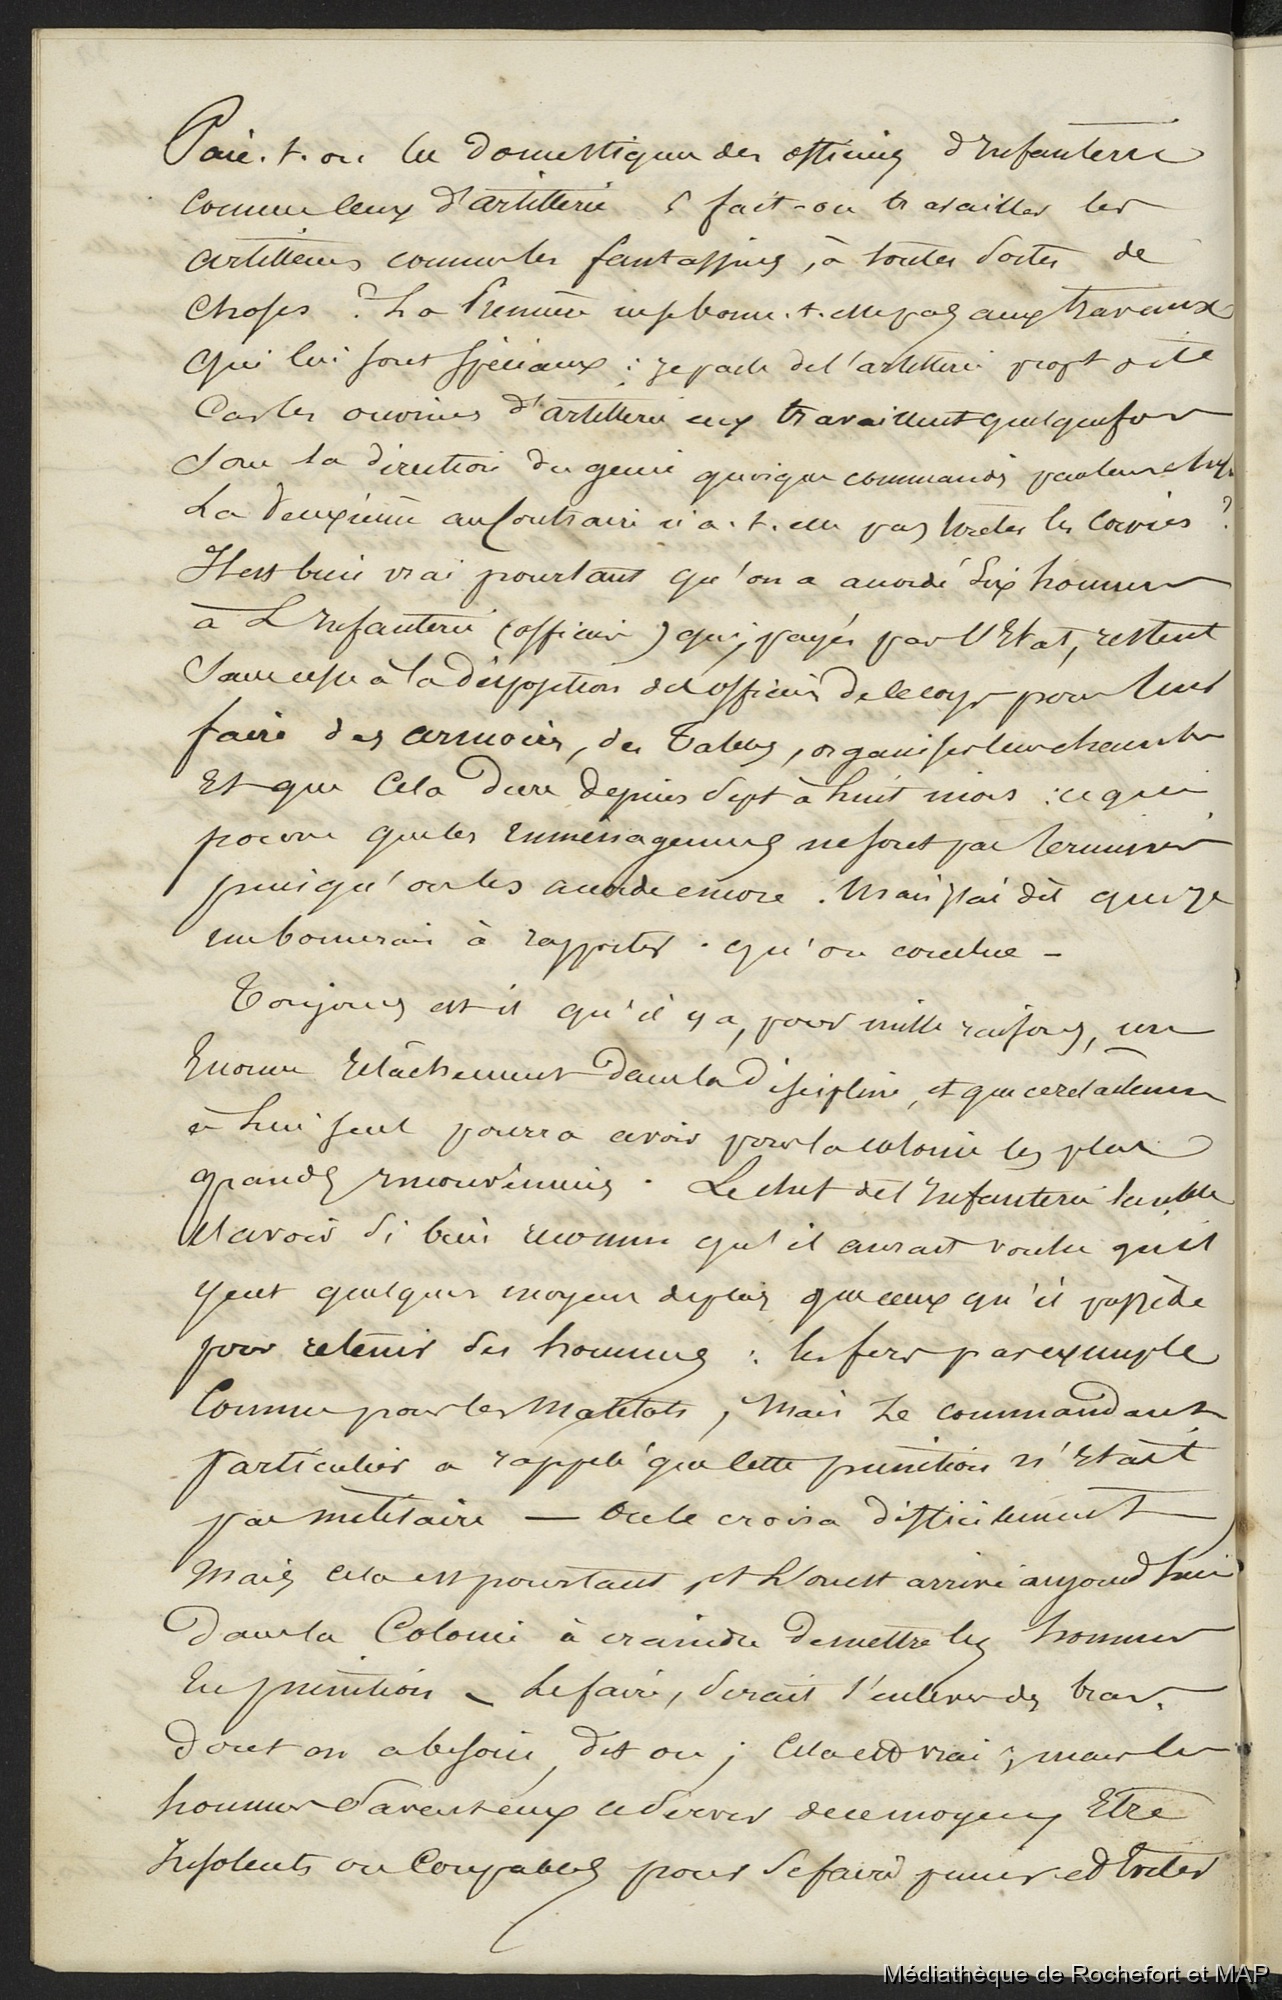 Paie-t-on les domestiques des officiers d'Infanterie
comme ceux d'artillerie ? fait-on travailler les
artilleurs comme les fantassins, à toutes sortes de
choses ? La Première ne se borne-t-elle pas aux travaux
qui lui sont spéciaux ; je parle de l'artillerie
Car les ouvriers d'artillerie eux travaillent quelquefois
sous la direction du génie quoique commandés par leurs chefs
La deuxième au Contraire n'a-t-elle pas toutes les Corvées ?
Il est bien vrai pourtant qu'on a accordé dix hommes
à L'Infanterie (officiers) qui, payés par l'Etat, restent
sans cesse à la disposition des officiers de ce corps pour leur
faire des armoires, des Tables, organiser leur chambre
Et que Cela dure depuis sept à huit mois : ce qui
prouve que les Emménagements ne sont pas terminés
puisqu'on les accorde encore. Mais j'ai dit que je
me bornerais à rapporter. qu'on conclue -
Toujours est-il qu'il y a, pour mille raisons, un
Enorme relâchement dans la discipline, et que ce relâchement
à lui seul pourra avoir pour la colonie les plus
grands inconvénients. Le chef de l'Infanterie semble
l'avoir si bien reconnu qu'il aurait voulu qu'il
y eut quelques moyens de plus que ceux qu'il possède
pour retenir ses hommes : les fers par exemple
Comme pour les Matelots, Mais Le commandant
particulier a rappelé que cette punition n'était
pas militaire — On le croira difficilement
Mais cela est pourtant, et L'on est arrivé aujourd'hui
Dans la Colonie à craindre de mettre les hommes
En punition - Le faire, serait s'enlever des bras
dont on a besoin, dit on ; Cela est vrai ; mais les
hommes savent eux se servir de ce moyen, Etre
Insolents ou Coupables pour se faire punir et éviter
Médiathèque de Rochefort et MAP